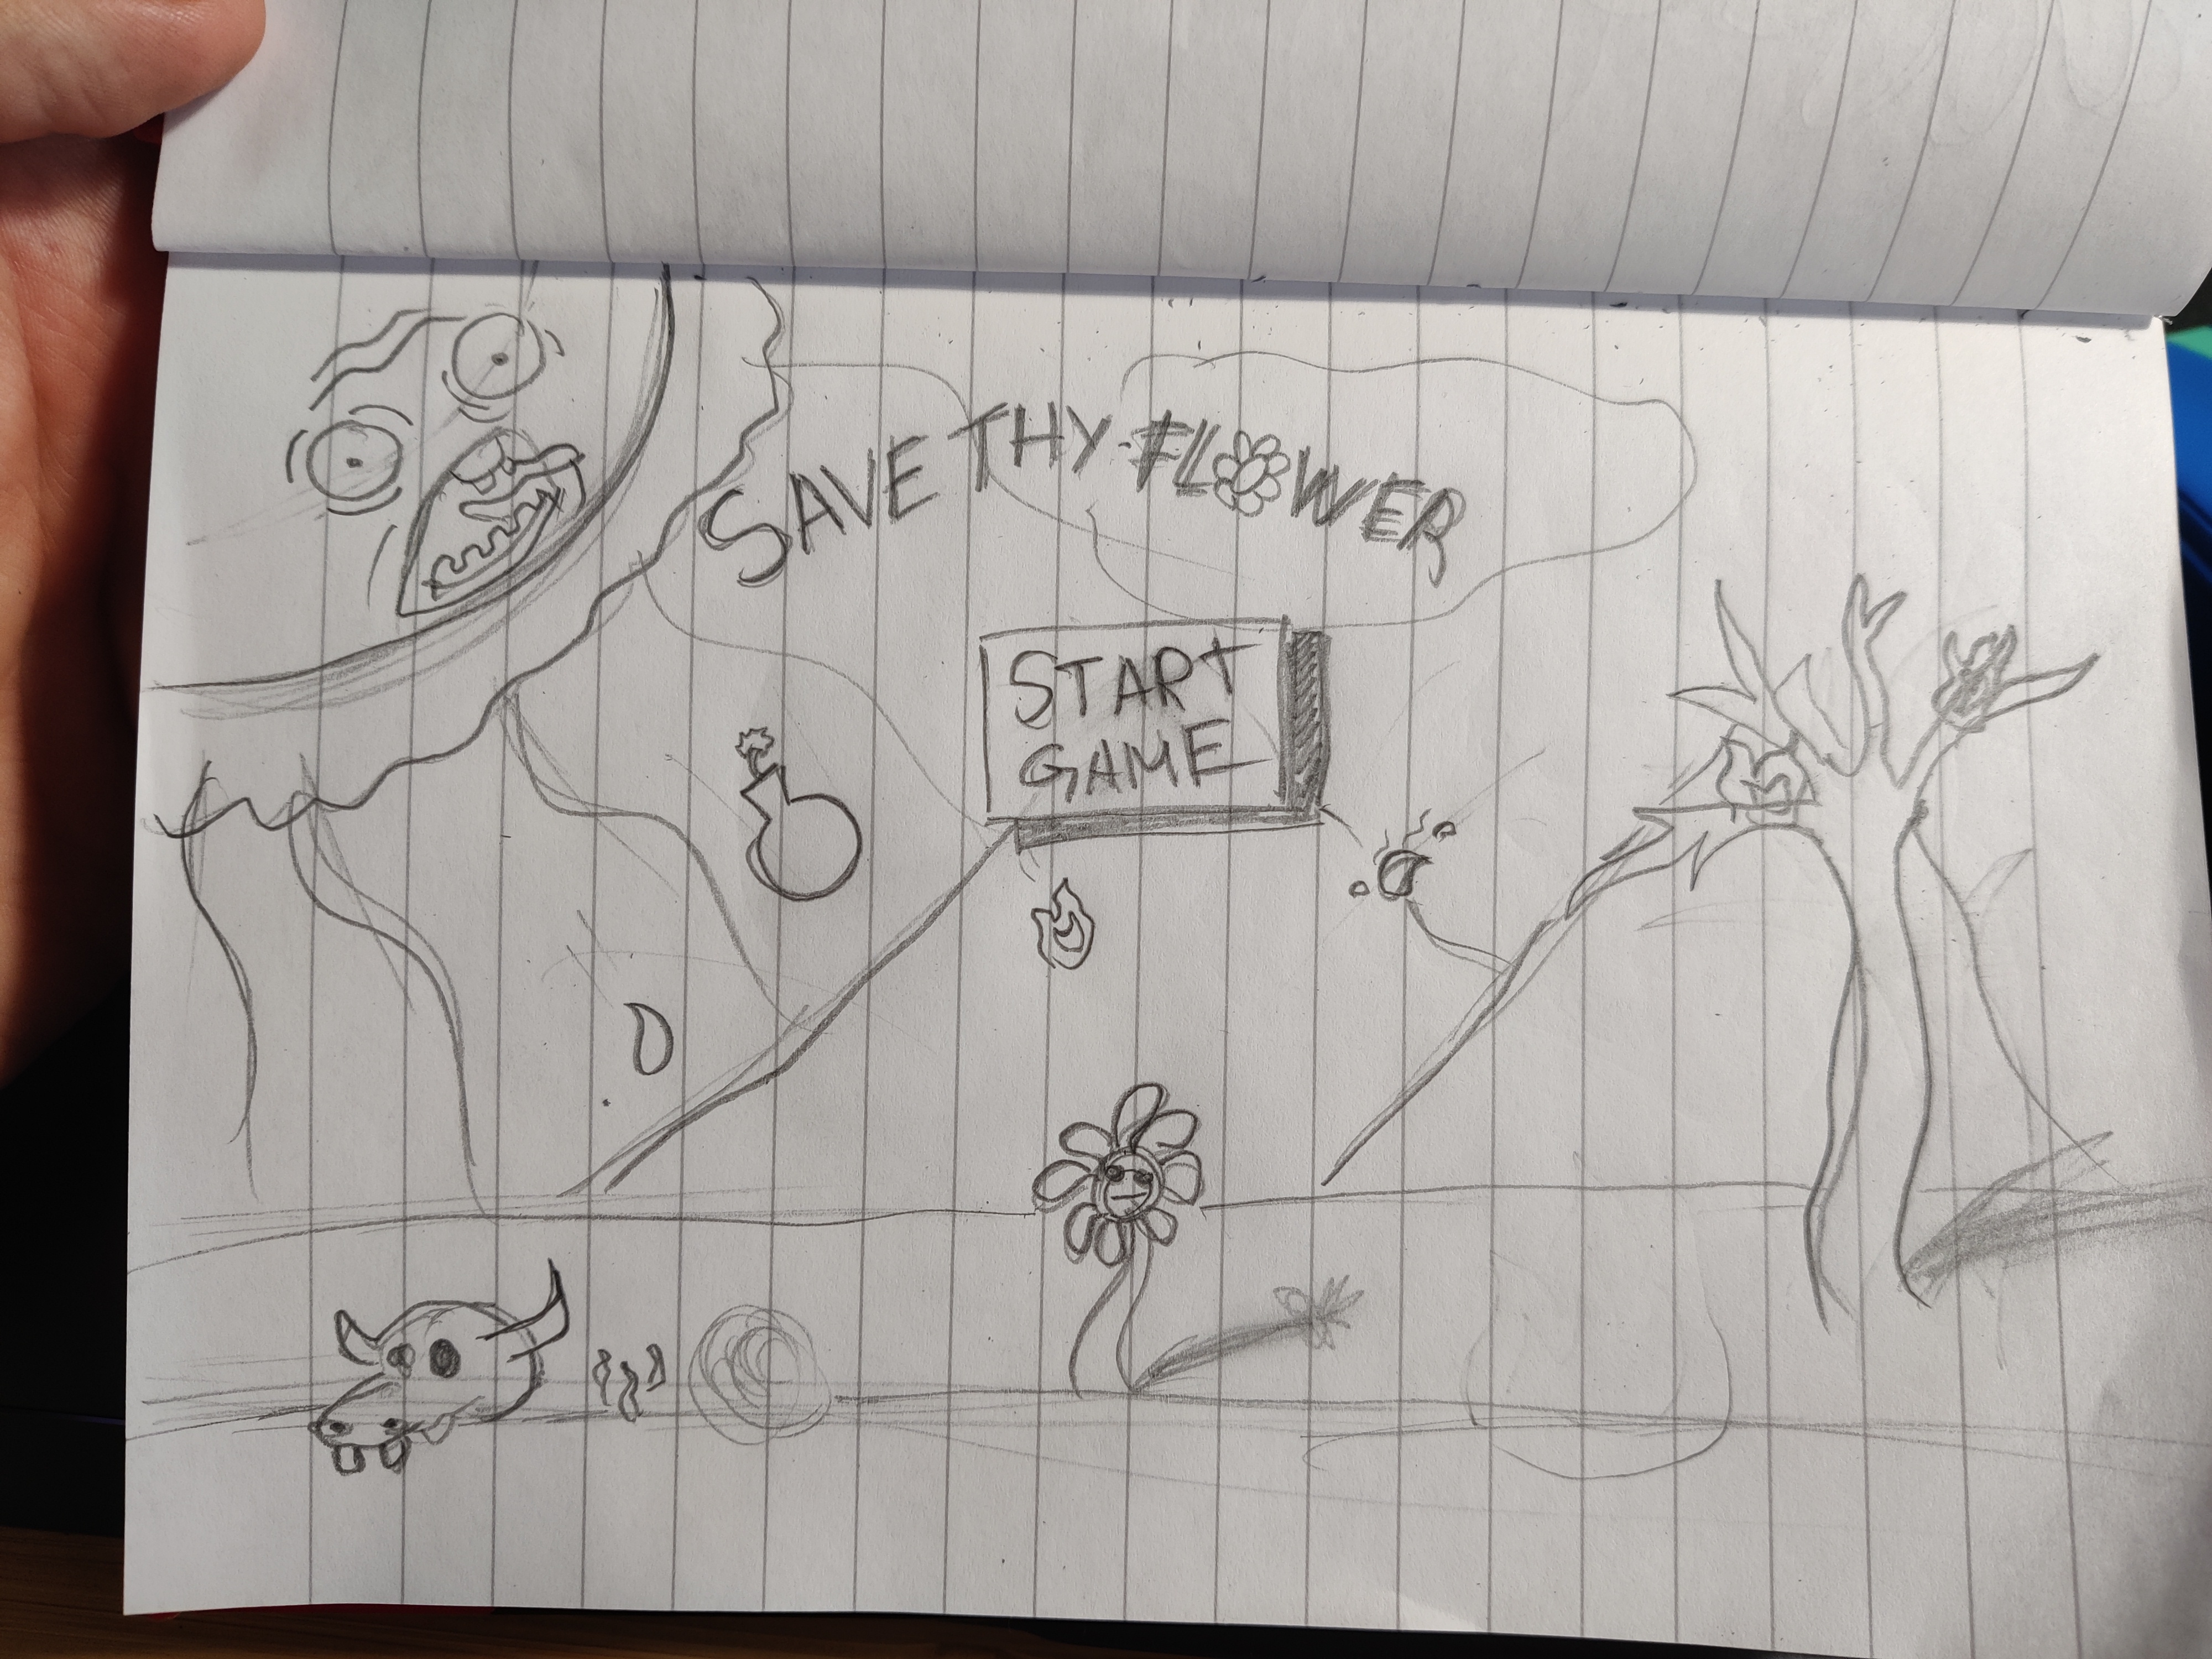 SAVE THY FLOWER
START
GAME